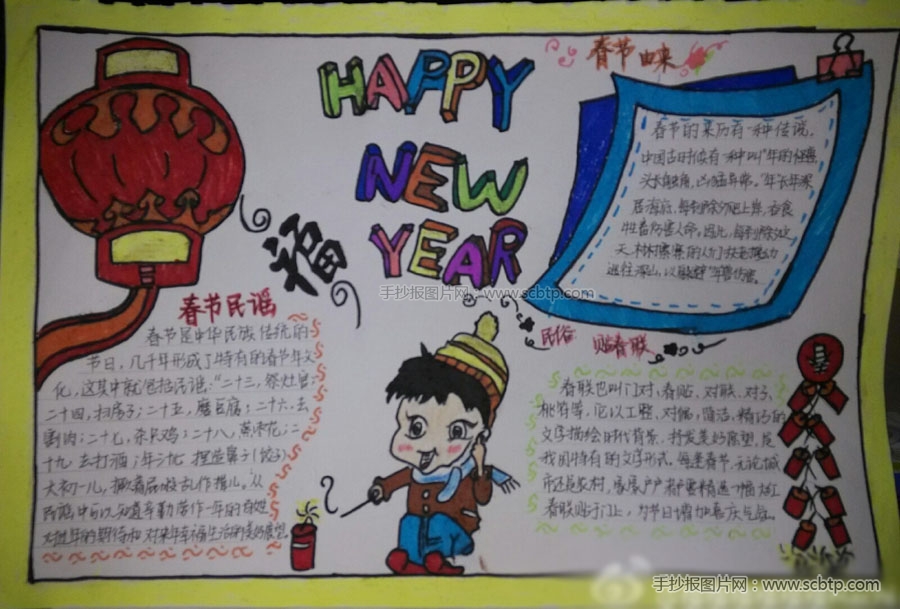 HAPPY
NEW
YEAR
福
春节由来
春节的来历有一种传说,
中国古时候有一种叫"年"的怪兽
头长触角,凶猛异常。"年"长年深
居海底,每到除夕爬上岸,吞食
牲畜伤害人命。因此,每到除夕这
天,村村寨寨的人们扶老携幼
逃往深山,以躲避"年"兽伤害。
手抄报图片网:www.scbtp.com
春节民谣
春节是中华民族传统的
节日,几千年形成了特有的春节年文
化,这其中就包括民谣:"二十三,祭灶官;
二十四,扫房子;二十五,磨豆腐;二十六,去
割肉;二十七,杀只鸡;二十八,蒸枣花;二
十九,去打酒;年三十儿,捏造鼻子(饺子)
大初一儿,撅着屁股去作揖儿。从
民谣中可以知道辛勤劳作一年的百姓
对过年的期待和对来年幸福生活的美好愿望。
民俗 贴春联
春联也叫门对、春贴、对联、对子,
桃符等,它以工整、对偶、简洁、精巧的
文字描绘时代背景,抒发美好愿望,是
我国特有的文学形式。每逢春节,无论城
市还是农村,家家户户都要精选一幅大红
春联贴于门上,为节日增加喜庆气氛。
手抄报图片网:www.scbtp.com